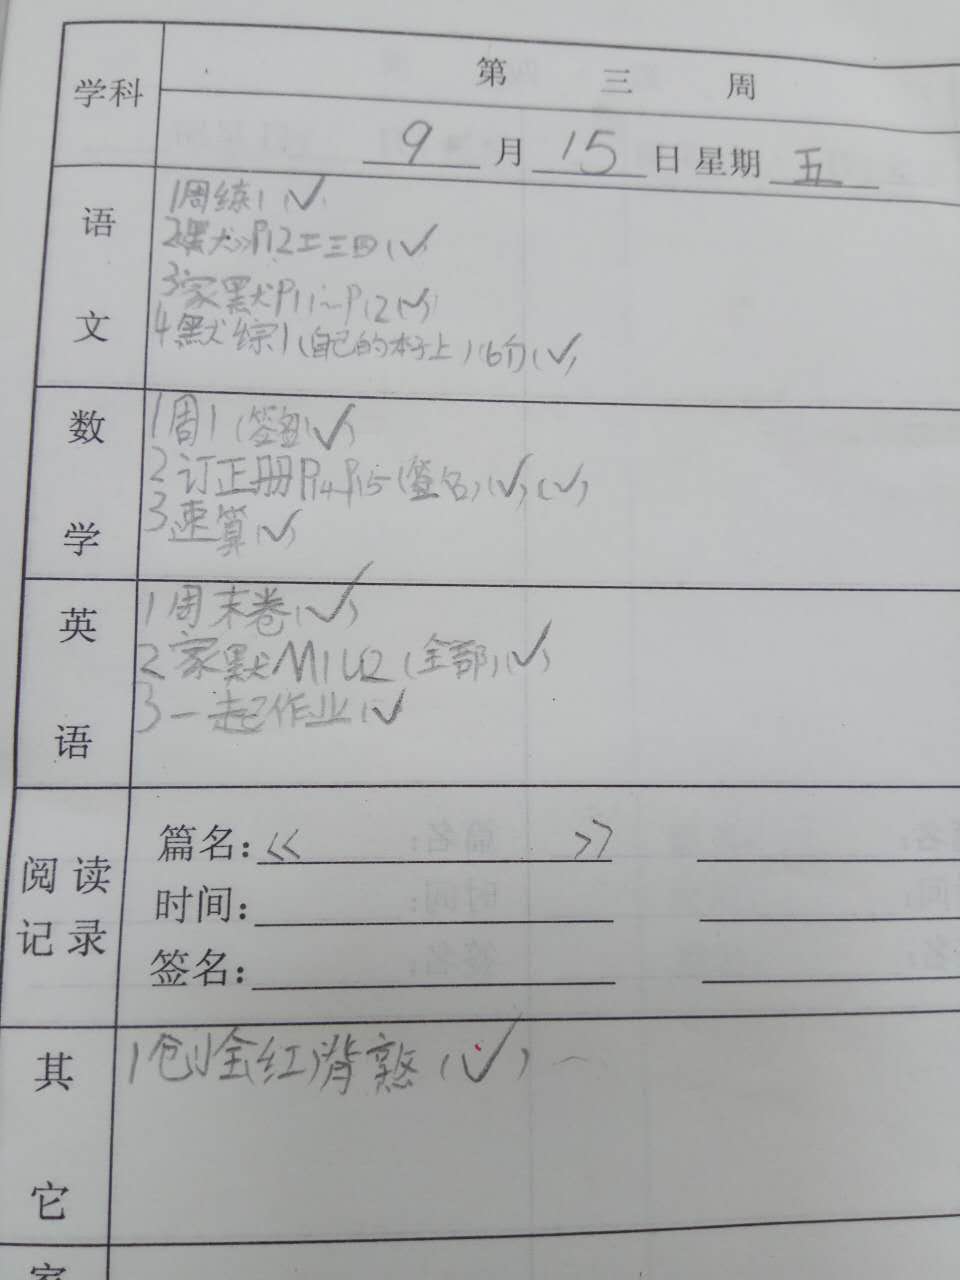 学科
第 三 周
9 月 15 日 星期 五
语文
1周练1(✓)
2《黑犬》P12二三四(✓)
3家默P11~P12(✓)
4默综1(自己的本子上)(6分)(✓)
数学
1周1(签名)(✓)
2订正册P14P15(签名)(✓)(✓)
3速算(✓)
英语
1周末卷(✓)
2家默M1U2(全部)(✓)
3一起作业(✓)
阅读记录
篇名:《 》
时间:
签名:
其它
1 背熟(✓)